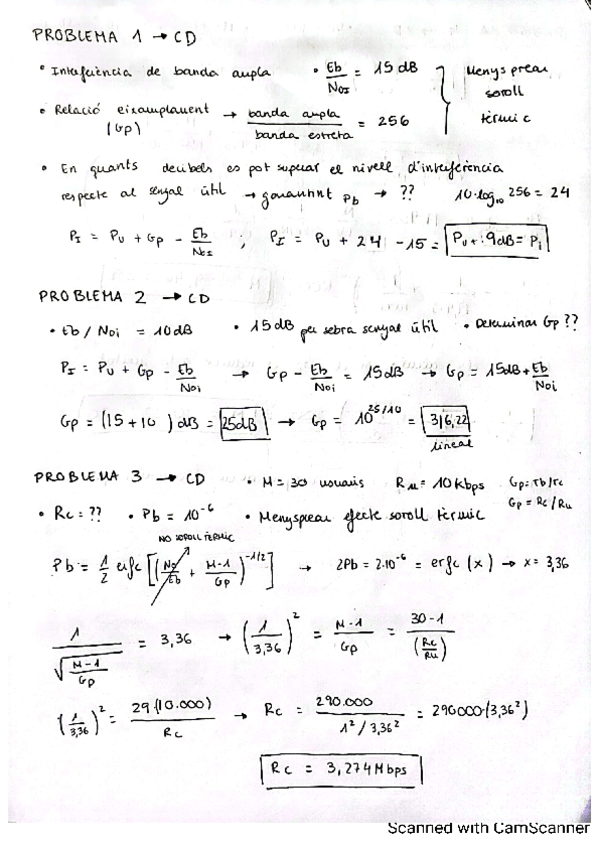 PROBLEMA 1 → CD
• Interferència de banda ampla • Eb/NoI = 15 dB } Menysprear soroll tèrmic
• Relació eixamplament (Gp) → banda ampla / banda estreta = 256
• En quants decibels es pot superar el nivell d'interferència
respecte al senyal útil → garantint Pb → ?? 10·log10 256 = 24
PI = PU + Gp - Eb/NoI ; PI = PU + 24 - 15 = PU + 9dB = Pi
PROBLEMA 2 → CD
• Eb / Noi = 10 dB • 15 dB per sobra senyal útil • Determinar Gp ??
PI = PU + Gp - Eb/Noi → Gp - Eb/Noi = 15dB → Gp = 15dB + Eb/Noi
Gp = (15 + 10) dB = 25dB → Gp = 10^25/10 = 316,22
lineal
PROBLEMA 3 → CD • M = 30 usuaris Ru = 10 Kbps Gp = Tb/Tc
Gp = Rc/Ru
• Rc = ?? • Pb = 10^-6 • Menysprear efecte soroll tèrmic
NO SOROLL TÈRMIC
Pb = 1/2 erfc [(No/Eb + M-1/Gp)^-1/2] → 2Pb = 2·10^-6 = erfc (x) → x = 3,36
1/√(M-1/Gp) = 3,36 → (1/3,36)^2 = M-1/Gp = 30-1/(Rc/Ru)
(1/3,36)^2 = 29(10.000)/Rc → Rc = 290.000/1^2/3,36^2 = 290000·(3,36^2)
Rc = 3,274 Mbps
Scanned with CamScanner